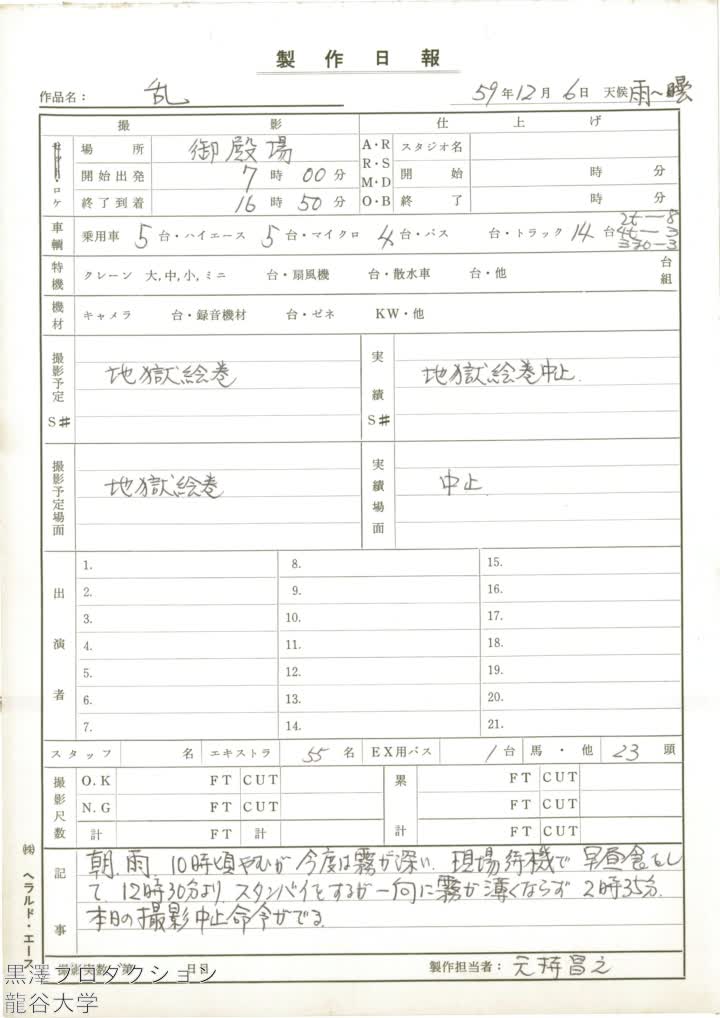 製作日報
作品名： 乱 59年12月6日 天候 雨〜曇
撮影 仕上げ
セット・ロケ 場所 御殿場 A・R スタジオ名
開始出発 7時00分 R・S M・D 開始 時 分
終了到着 16時50分 O・B 終了 時 分
2t－8
車輌 乗用車 5台・ハイエース 5台・マイクロ 4台・バス 台・トラック 14台 4t－3
330－3
特機 クレーン 大,中,小,ミニ 台・扇風機 台・散水車 台・他 台組
機材 キャメラ 台・録音機材 台・ゼネ KW・他
撮影予定S# 地獄絵巻 実績S# 地獄絵巻中止.
撮影予定場面 地獄絵巻 実績場面 中止
出演者
1. 8. 15.
2. 9. 16.
3. 10. 17.
4. 11. 18.
5. 12. 19.
6. 13. 20.
7. 14. 21.
スタッフ 名 エキストラ 55名 EX用バス 1台 馬・他 23頭
撮影尺数 O.K FT CUT 累計 FT CUT
N.G FT CUT FT CUT
計 FT 計 FT CUT
記事
朝、雨、10時頃やむが今度は霧が深い. 現場待機で早昼食をし
て. 12時30分より、スタンバイをするが一向に霧が薄くならず 2時35分.
本日の撮影中止命令がでる.
撮影実数 第 日目 製作担当者： 元持昌之
㈱ ヘラルド・エース
黒澤プロダクション
龍谷大学